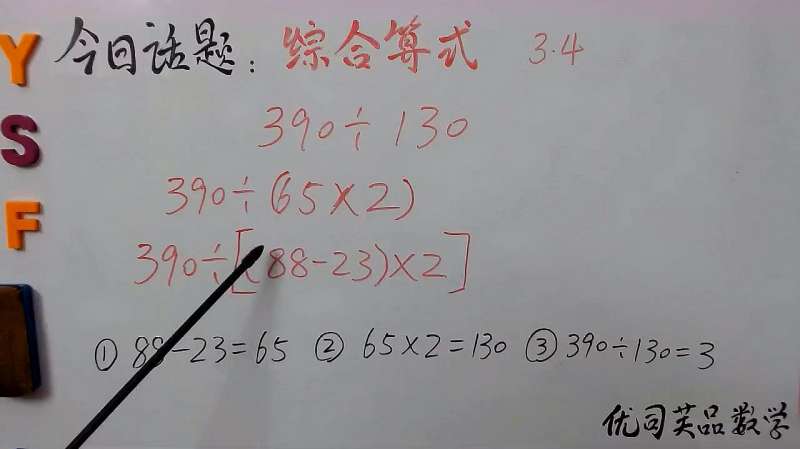 今日话题：综合算式 3.4
390÷130
390÷(65×2)
390÷[(88-23)×2]
① 88-23=65 ② 65×2=130 ③ 390÷130=3
优司芙品数学
Y
S
F